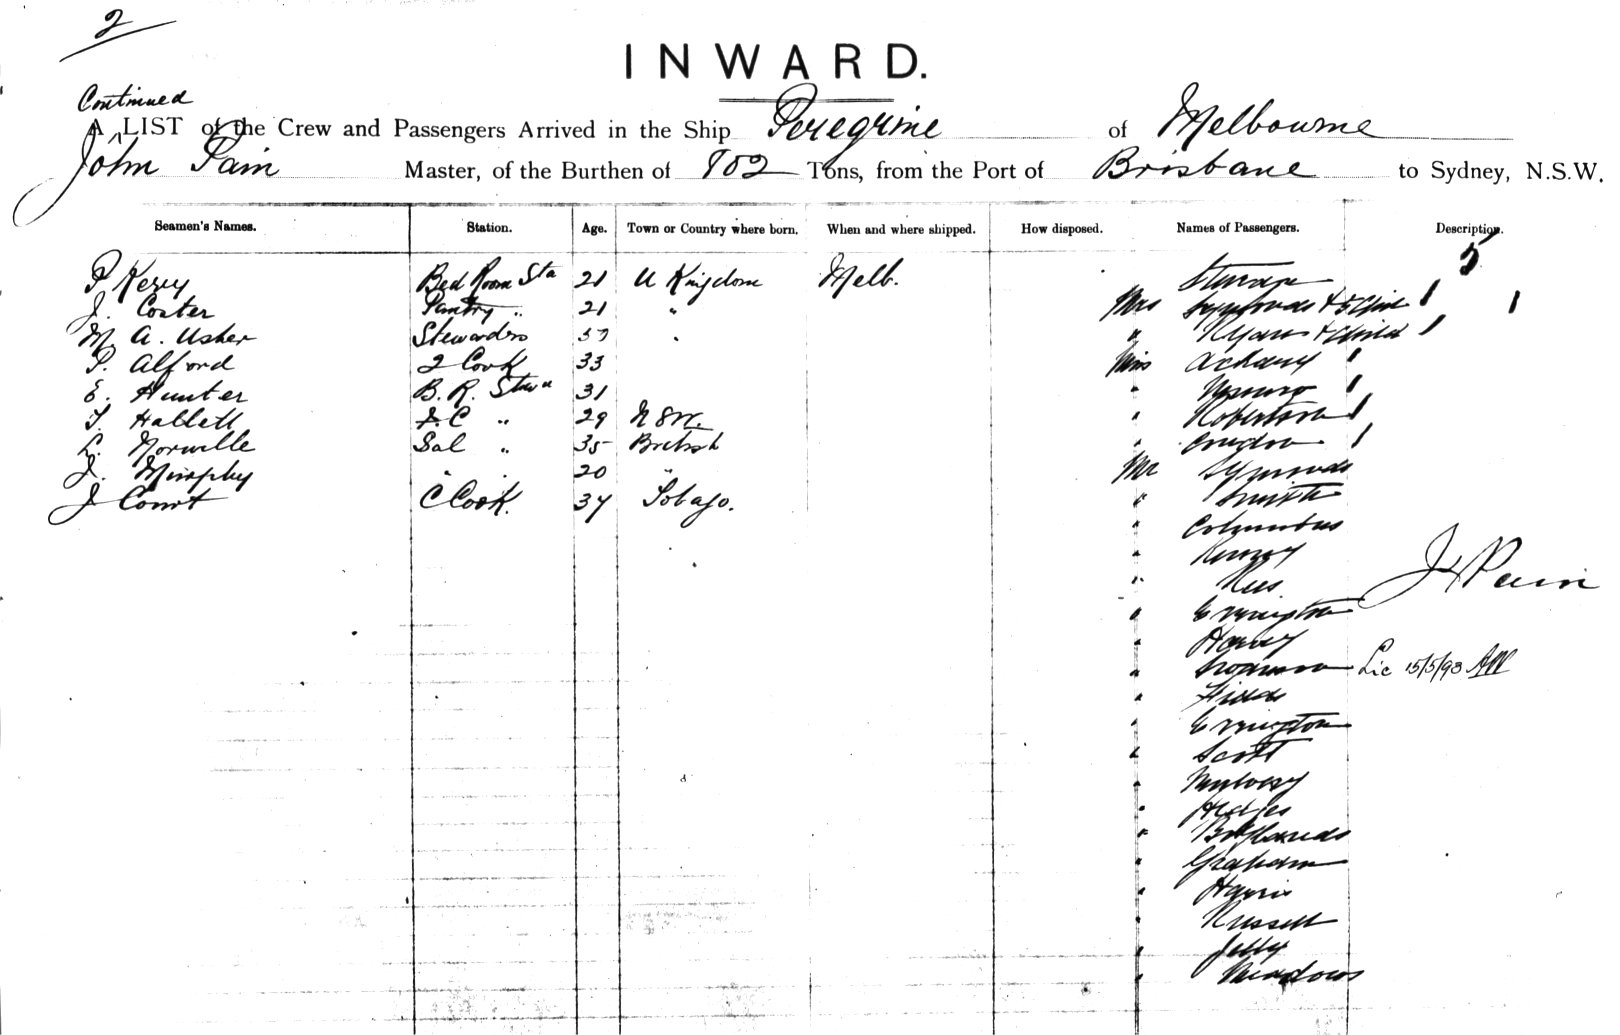 2
INWARD.
Continued
A LIST of the Crew and Passengers Arrived in the Ship Peregrine of Melbourne
John Pain Master, of the Burthen of 902 Tons, from the Port of Brisbane to Sydney, N.S.W.
Seamen's Names. Station. Age. Town or Country where born. When and where shipped. How disposed. Names of Passengers. Description.
5
P Bed Room Std 21 U Kingdom Melb.
J. Coster Pantry " 21 " Mrs Symonds + 5 Chil
M A. Usher Stewardess " Ryan + Child
P. Alford 2 Cook 33 Miss
E. Hunter B. R. Stew 31 " Young
T. Hallett F.C " 29 N S W. " Robertson
L. Norville Sal " 35 British "
J. Murphy " " 20 " Mr Symonds
J Court C Cook. 37 Tobago. " Smith
" Columbus
"
" Rees
" Errington
J Pain
" Harvey
" Lic 15/5/93
"
" Errington
" Scott
"
"
"
" Graham
" Harris
" Russell
" Jelly
" Meadows